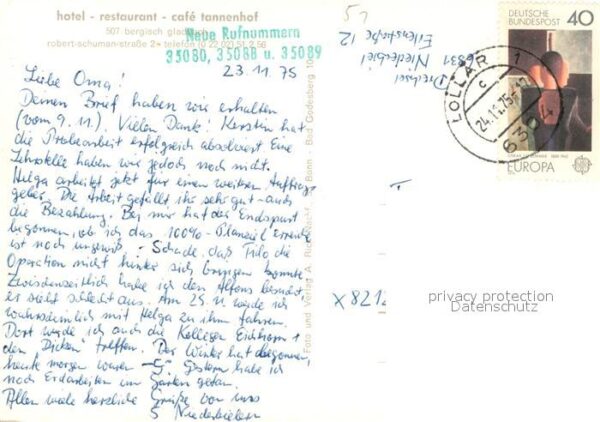 hotel - restaurant - café tannenhof
507 bergisch gladbach
robert-schuman-straße 2 • telefon (0 22 02) 51 2 56
Neue Rufnummern
35080, 35088 u. 35089
23.11.75
Liebe Oma!
Deinen Brief haben wir erhalten
(vom 9.11.). Vielen Dank! Kersten hat
die Probearbeit erfolgreich absolviert. Eine
haben wir jedoch noch nicht.
Helga arbeitet jetzt für einen weitren Auftrag-
geber. Die Arbeit gefällt ihr sehr gut - auch
die Bezahlung. Bei mir hat der Endspurt
begonnen, ob ich das 100% - Planziel erreiche
ist noch ungewiß. - Schade, daß Filo die
Operation nicht hinter sich bringen konnte.
Zwischenzeitlich habe ich den Alfons besucht
er sieht schlecht aus. Am 25.11 werde ich
wahrscheinlich mit Helga zu ihm fahren.
Dort werde ich auch die Kollegen Eichhorn +
den "Dicken" treffen. Der Winter hat begonnen,
heute morgen waren -5°. Gestern habe ich
noch Erdarbeiten im Garten getan.
Allen viele herzliche Grüße von uns
5 Niederbielern
Foto und Verlag A. Bonn - Bad Godesberg
51
Drechsel
6331 Niederbiel
12
DEUTSCHE
BUNDESPOST
40
EUROPA
LOLLAR 1
c
24.11.75
6304
X821
privacy protection
Datenschutz